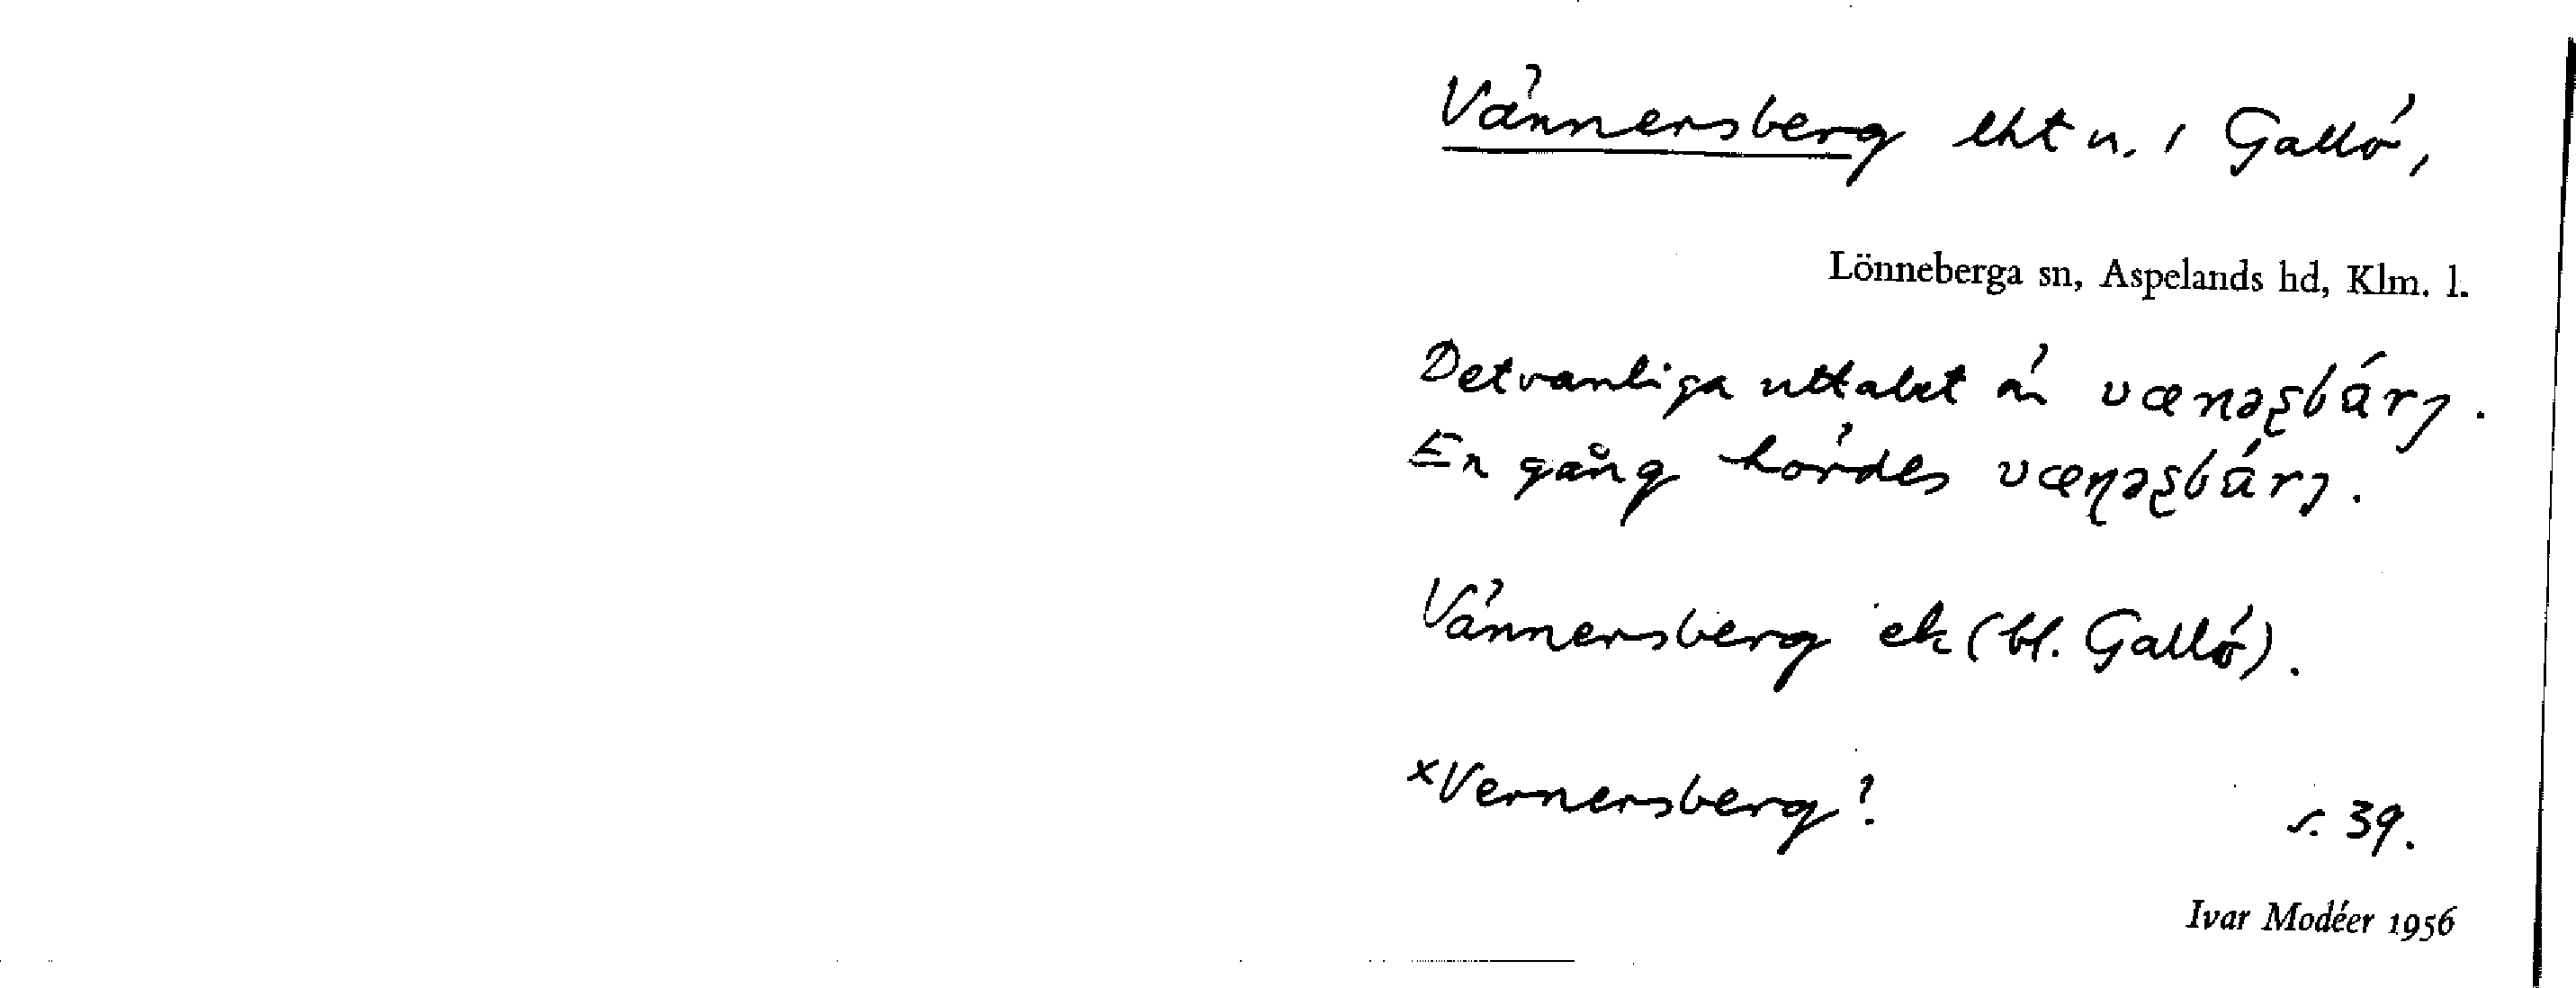 Vännersberg lht n. i Gallö,
Lönneberga sn, Aspelands hd, Klm. l.
Det vanliga uttalet är vænəʂbárj.
En gång hördes væɳəʂbárj.
Vännersberg ek (bl. Gallö).
×Vernersberg?
s. 39.
Ivar Modéer 1956